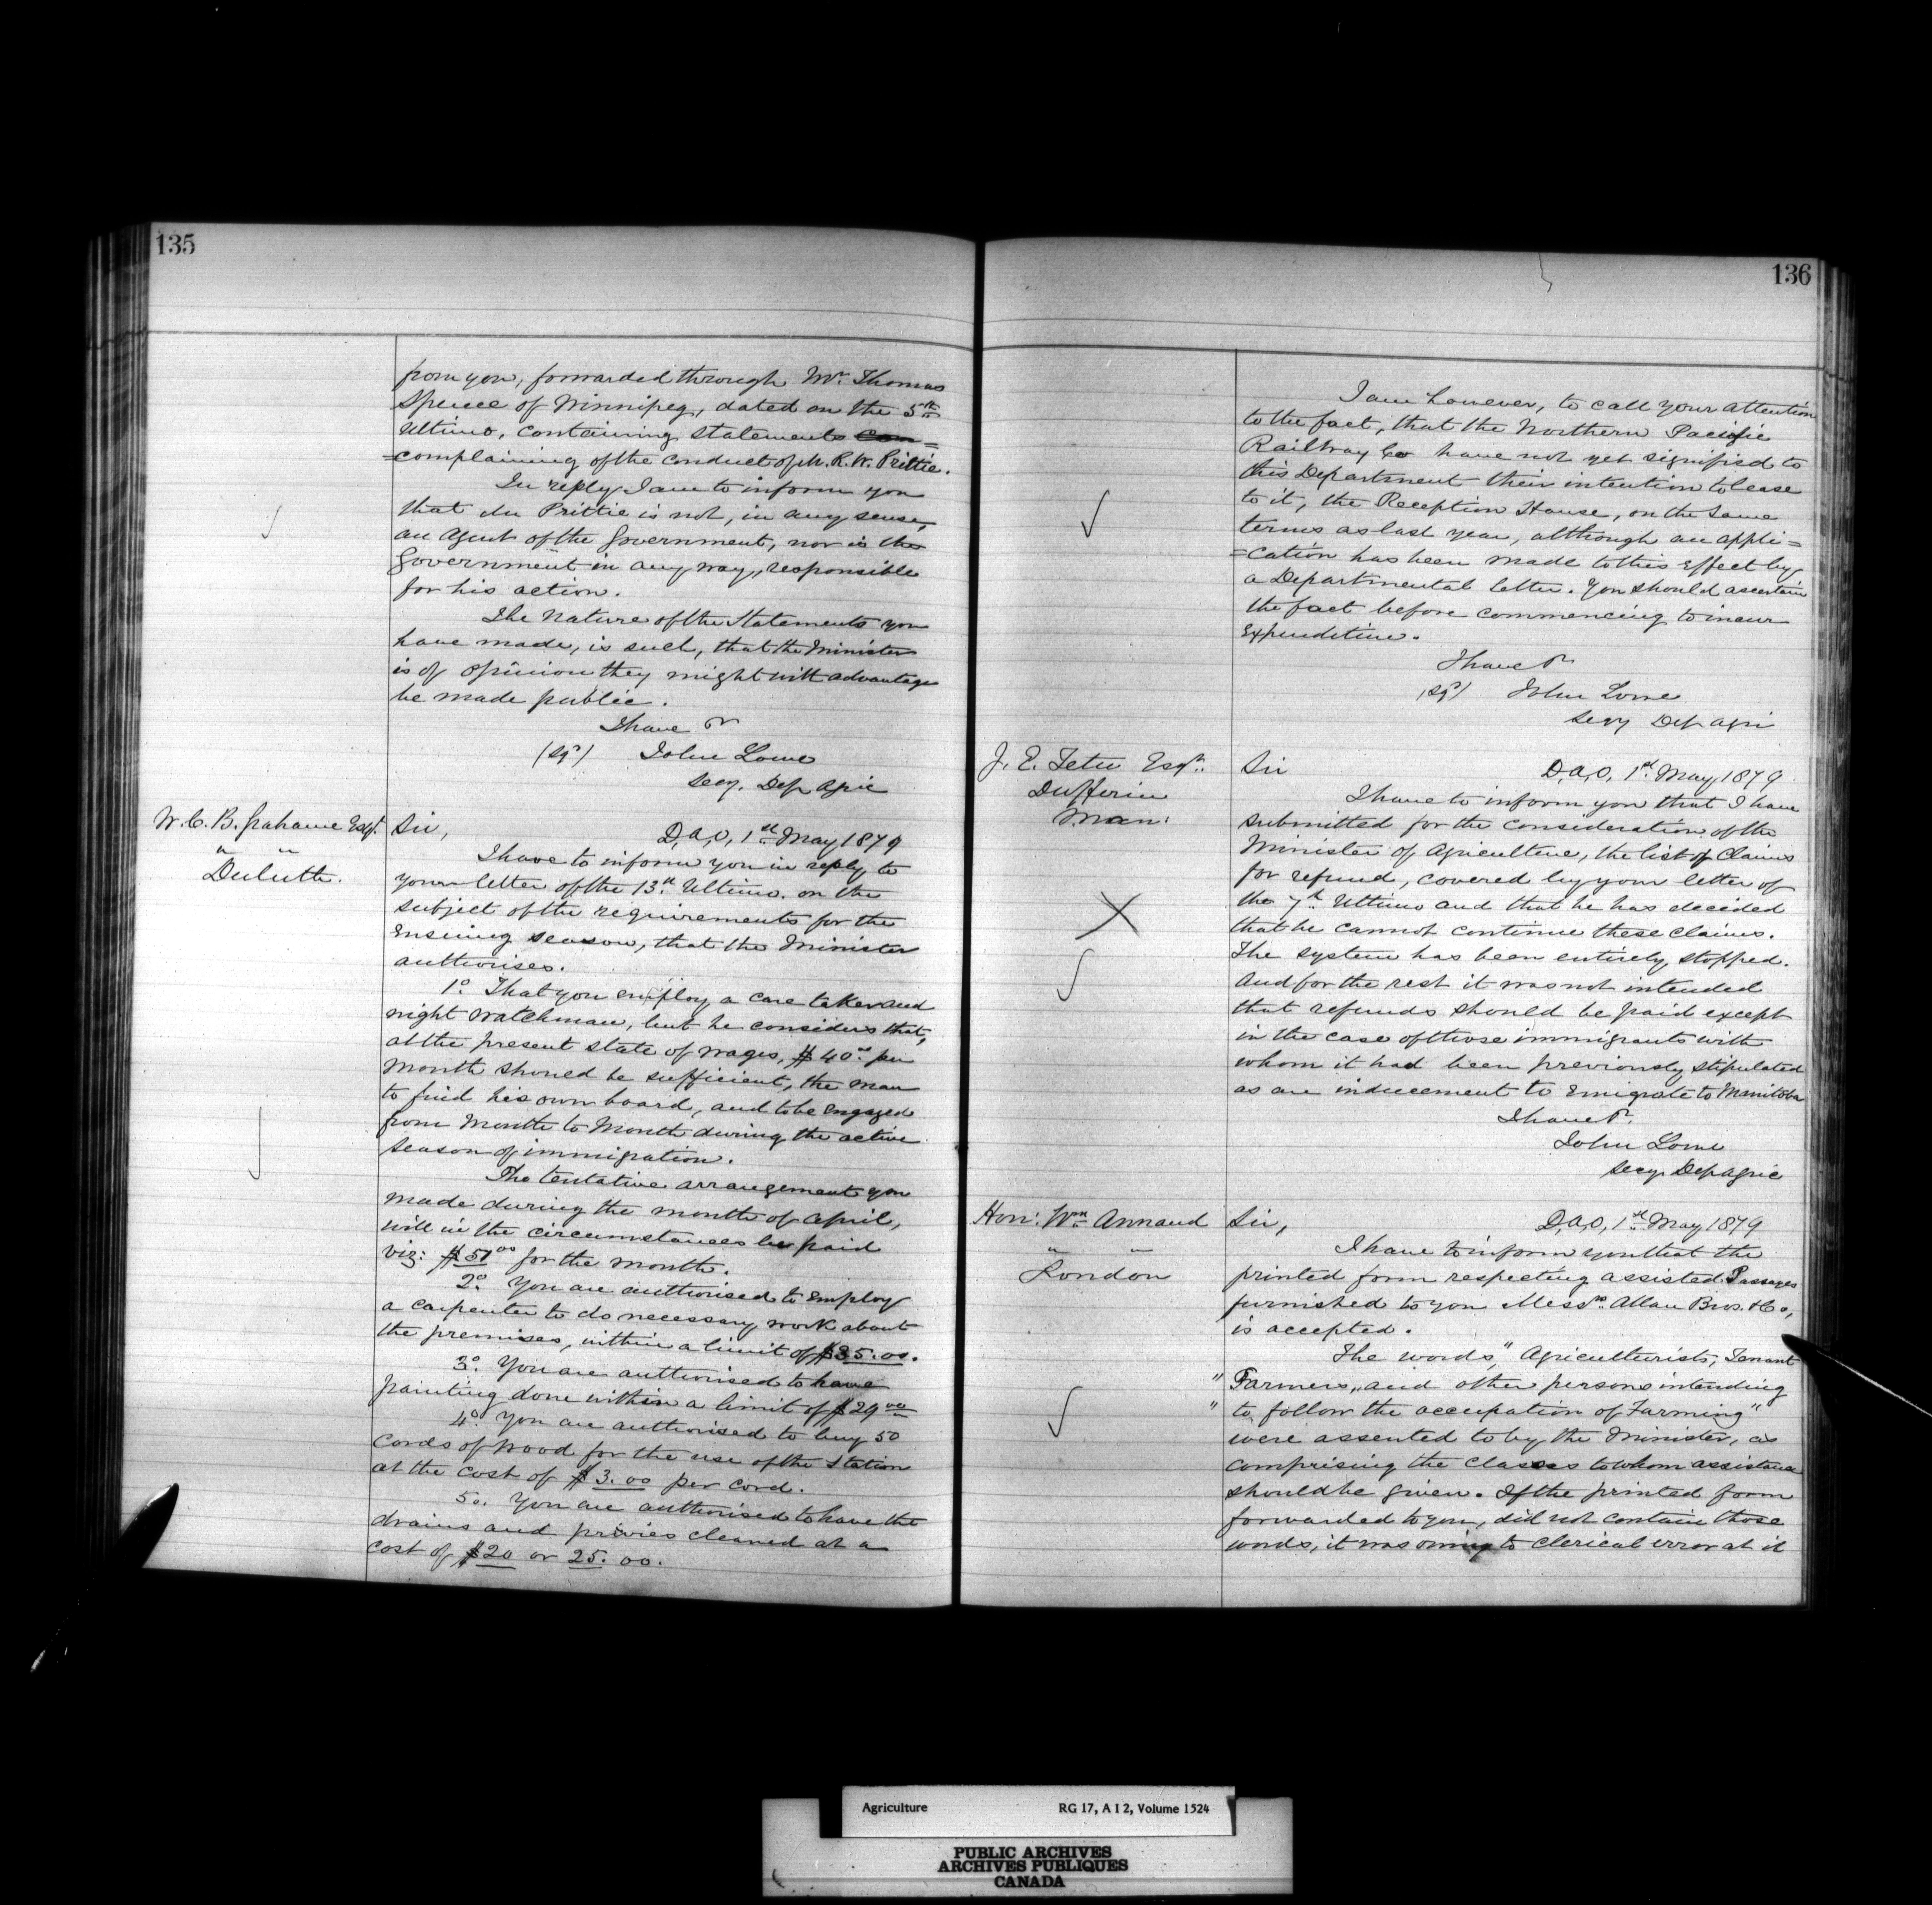 135
from you, forwarded through Mr. Thomas
Spence of Winnipeg, dated on the 5th
Ultimo, containing statements com=
=complaining of the conduct of Mr. R. W. Prittie.
In reply I am to inform you
that Mr Prittie is not, in any sense,
an Agent of the Government, nor is the
Government in any way, responsible
for his action.
The nature of the Statements you
have made, is such, that the Minister
is of opinion they might with advantage
be made public.
I have &c
(Sgd) John Lowe
Secy. Dep Agric
W. C. B. Grahame Esqr.
" "
Duluth.
Sir,
D, a, O, 1st May 1879
I have to inform you in reply to
your letter of the 13th Ultimo. on the
subject of the requirements for the
ensuing season, that the Minister
authorises.
1o That you employ a care taker and
night watchman, but he considers that,
at the present state of wages, $40.00 per
month should be sufficient, the man
to find his own board, and to be engaged
from month to month during the active
season of immigration.
The tentative arrangement you
made during the month of April,
will in the circumstances be paid
viz: $51 00 for the month.
2o. You are authorised to employ
a carpenter to do necessary work about
the premises, within a limit of $35.00.
3o. You are authorised to have
painting done within a limit of $29 00
4o. You are authorised to buy 50
cords of wood for the use of the Station
at the cost of $3.00 per cord.
5o. You are authorised to have the
drains and privies cleaned at a
cost of $20 or 25.00.
136
I am however, to call your attention
to the fact, that the Northern Pacific
Railway Co have not yet signified to
this Department their intention to lease
to it, the Reception House, on the same
terms as last year, although an appli=
=cation has been made to this effect by
a Departmental letter. You should ascertain
the fact before commencing to incur
expenditure.
I have &c
(Sgd) John Lowe
Secy Dep Agri
J. E. Tetu Esqr.
Dufferin
Man:
Sir
D, a, O, 1st May, 1879
I have to inform you that I have
submitted for the consideration of the
Minister of Agriculture, the list of claims
for refund, covered by your letter of
the 7th Ultimo and that he has decided
that he cannot continue these claims.
The system has been entirely stopped.
And for the rest it was not intended
that refunds should be paid except
in the case of those immigrants with
whom it had been previously stipulated
as an inducement to emigrate to Manitoba
I have &c.
John Lowe
Secy. Dep Agric
Hon: Wm. Annand
" "
London
Sir,
D, a, O, 1st May 1879
I have to inform you that the
printed form respecting assisted Passages
furnished to you Messrs. Allan Bros. & Co,
is accepted.
The words, " Agriculturists, Tenant
" Farmers, and other persons intending
" to follow the occupation of Farming"
were assented to by the Minister, as
comprising the classes to whom assistance
should be given. If the printed form
forwarded to you, did not contain those
words, it was owing to clerical error as it
Agriculture RG 17, A I 2, Volume 1524
PUBLIC ARCHIVES
ARCHIVES PUBLIQUES
CANADA